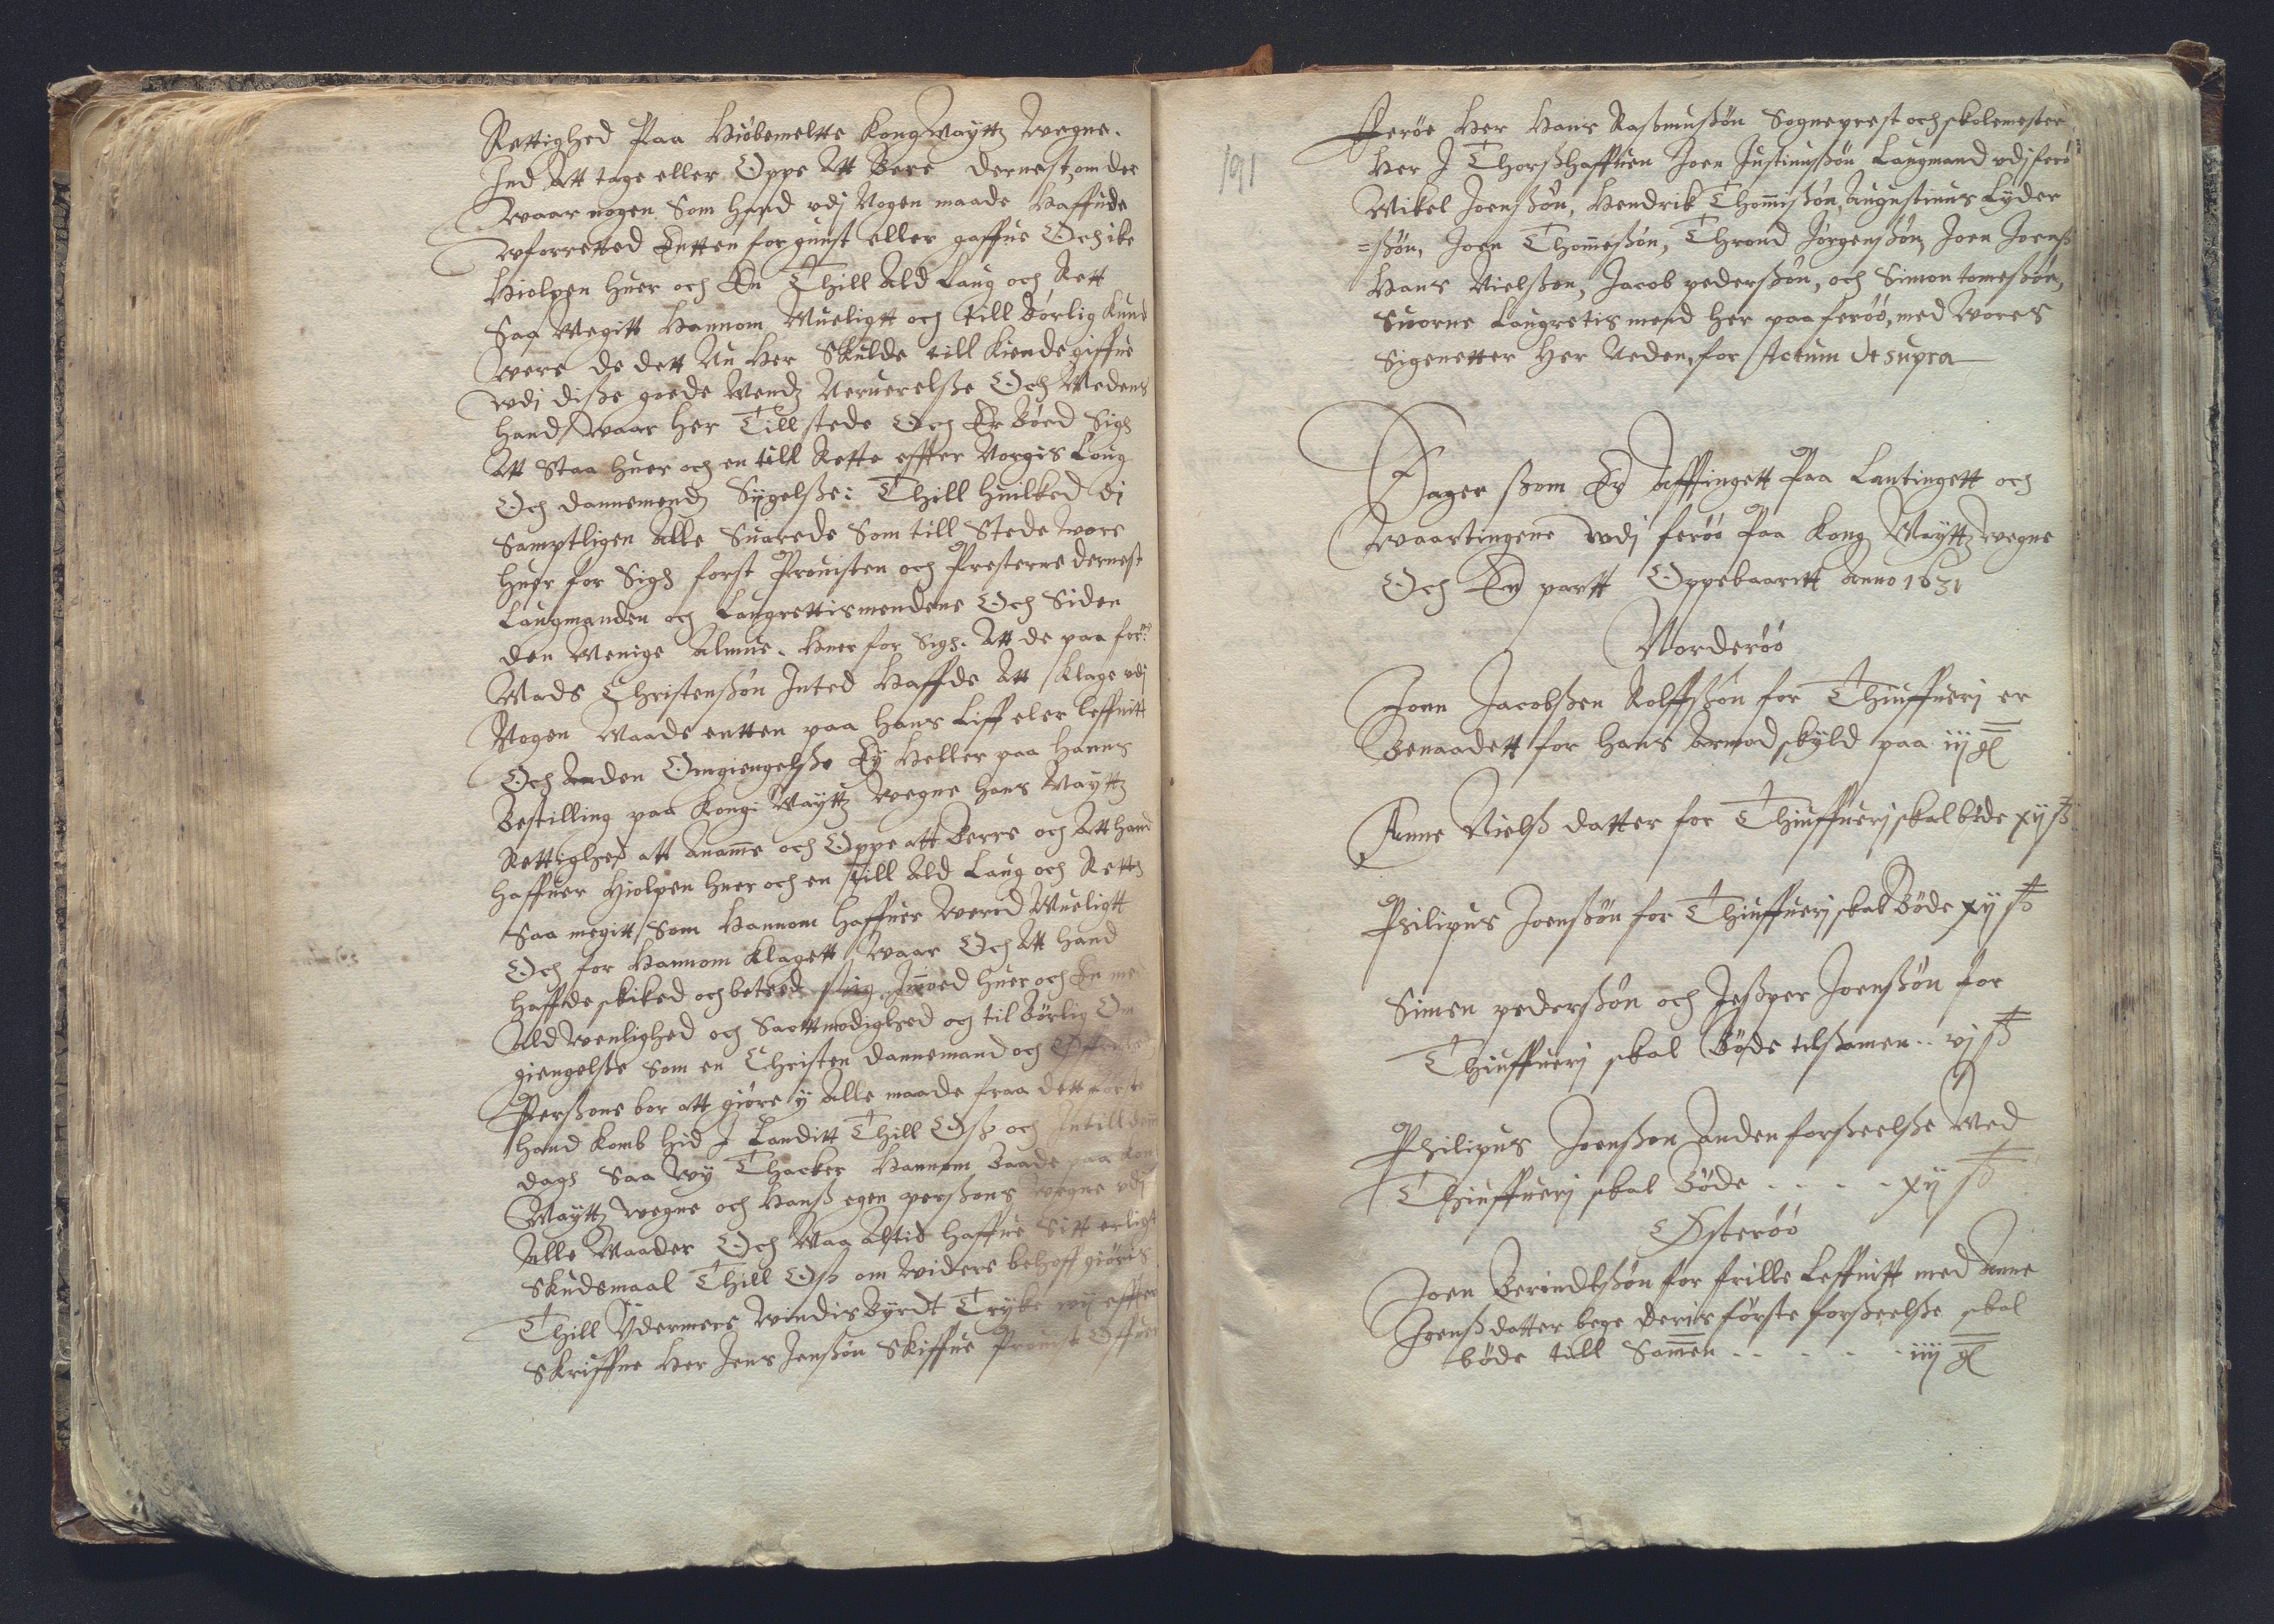 Rettighed Paa Høibemeltte Kong Mayttz Wegne.
Ind Att tage eller Oppe Att Bere dernest, om der
Waar nogen Som Hand vdj Nogen maade Haffude
Wforretted Entten for gunst eller gaffue Och ike
Hiolpen Huer och En Thill Ald Laug och Rett
Saa Megitt Hannom Mueligtt och till Børlig Kund
Were de dett Nu Her Skulde till Kiende giffue
Wdj disse goede Mendz Neruerelsse Och Medens
Hand Waar Her Tillstede Och Er Bøed Sigh
Att Staa Huer och en till Rette effter Norgis Loug
Och dannemendz Sygelsse: Thill Huilked di
Samptligen Alle Suarede Som till Stede Wore
Huer for Sigh først Prouisten och Presterne dernest
Laugmanden och Laugrettismendene Och Siden
den Menige Almue. Huer for Sigh. Att de paa for:ne
Mads Christenssøn Inted Haffde Att Klage vdj
Nogen Maade entten paa Hans Liff eler leffnitt
Och Anden Omgiengelsse Ey Heller paa Hanns
Bestilling paa Kongi: Mayttz Wegne Hans Mayttz
Rettighed att Anamme och Oppe att Berre och Att Hand
Haffuer Hiolpen Huer och en till Ald Laug och Rett
Saa megitt Som Hannom Haffuer Wered Mueligtt
Och for Hannom Klagett Waar Och Att Hand
Haffde skiked och beteed sig Imoed Huer och En med
Ald Wenlighed och Sacttmodighed och til Børlig Om
giengelsse Som en Christen Dannemand och
Perssone bør att giøre y Alle maade fraa dett Første
Hand Komb Hid I Landitt Thill Oss och Intill denn
dagh Saa Wy Thacker Hannom Baade paa Kong
Mayttz Wegne och Hanss egen perssons Wegne vdj
Alle Maader Och Maa Altid Haffue Sitt erligt
Skudsmaal Thill Oss om Widere behoff giøris
Thill Ydermere Windis Byrdt Tryke wij effter
Skriffne Her Jens Jenssøn Skiffue Prouist Offuer
191
Ferøe Her Hans Rasmussøn Sogneprest och skolemester
Her I Thorsshaffuen Joen Justinussøn Laugmand vdj ferø
Mikel Joenssøn, Hendrik Thommissøn, Augustinus Lyder
=ssøn, Joen Thommessøn, Thrond Jørgenssøn, Joen Joenss
Hans Nielssøn, Jacob pederssøn, och Simon tomessøn,
Suorne Laugretis mend Her paa ferøø, med Wores
Sigenetter Her Neden, for Actum Vt supra
Sager ssom Er Affsingett Paa Lantingett och
Waartingene wdj ferøø Paa Kong Mayttz Wegne
Och En partt Oppebaaritt Anno 1631
Norderøø
Joen Jacobssen Rolffssøn for Thiuffuerj er
Benaadett for Hans Armod skyld paa iij gl
Anne Nielss datter for Thiuffuerj skal bøde xij ß
Philipus Joenssøn for Thiuffuerj skal Bøde xij ß
Simen pederssøn och Jessper Joenssøn for
Thiuffuerj skal Bøde tilssamen .. vj ß
Philipus Joenssøn Anden forsseelsse Med
Thiuffuerj skal Bøde . . . . xij ß
Østerøø
Joen Berindtssøn for frille Leffnitt med Anne
Joenssdatter bege deris første forsseelsse skal
bøde till Samen . . . . . iiij gl